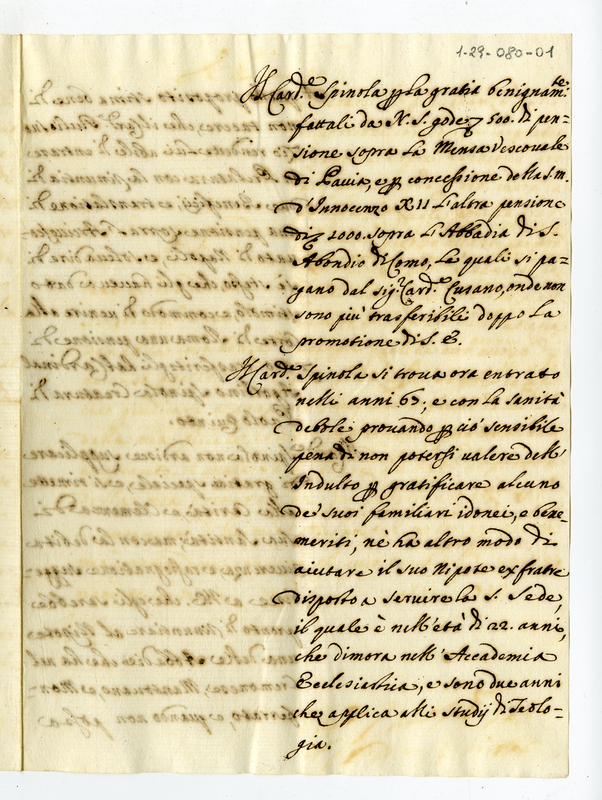 1-29-080-01
Il Card.e Spinola p la gratia benignam.te
fattali da N. S. gode 500. di pen=
sione sopra la Mensa Vescouale
di Pauia, e p concessione della S. m.
d'Innocenzo XII l'altra pensione
di 1000. sopra l'Abbadia di S.
Abondio di Como, le quali si pa=
gano dal sig.r Card.e Cusano, onde non
sono più trasferibili doppo la
promotione di S. E.
Il Card.e Spinola si troua ora entrato
nelli anni 63; e con la sanità
debole prouando p ciò sensibile
pena di non potersi ualere dell'
Indulto p gratificare alcuno
de' suoi familiari idonei, e bene=
meriti, nè ha altro modo di
aiutare il suo Nipote ex fratre
disposto a seruire la S. Sede,
il quale è nell'età di 22. anni,
che dimora nell'Accademia
Ecclesiastica, e sono due anni
che applica alli studij di Teolo=
gia.